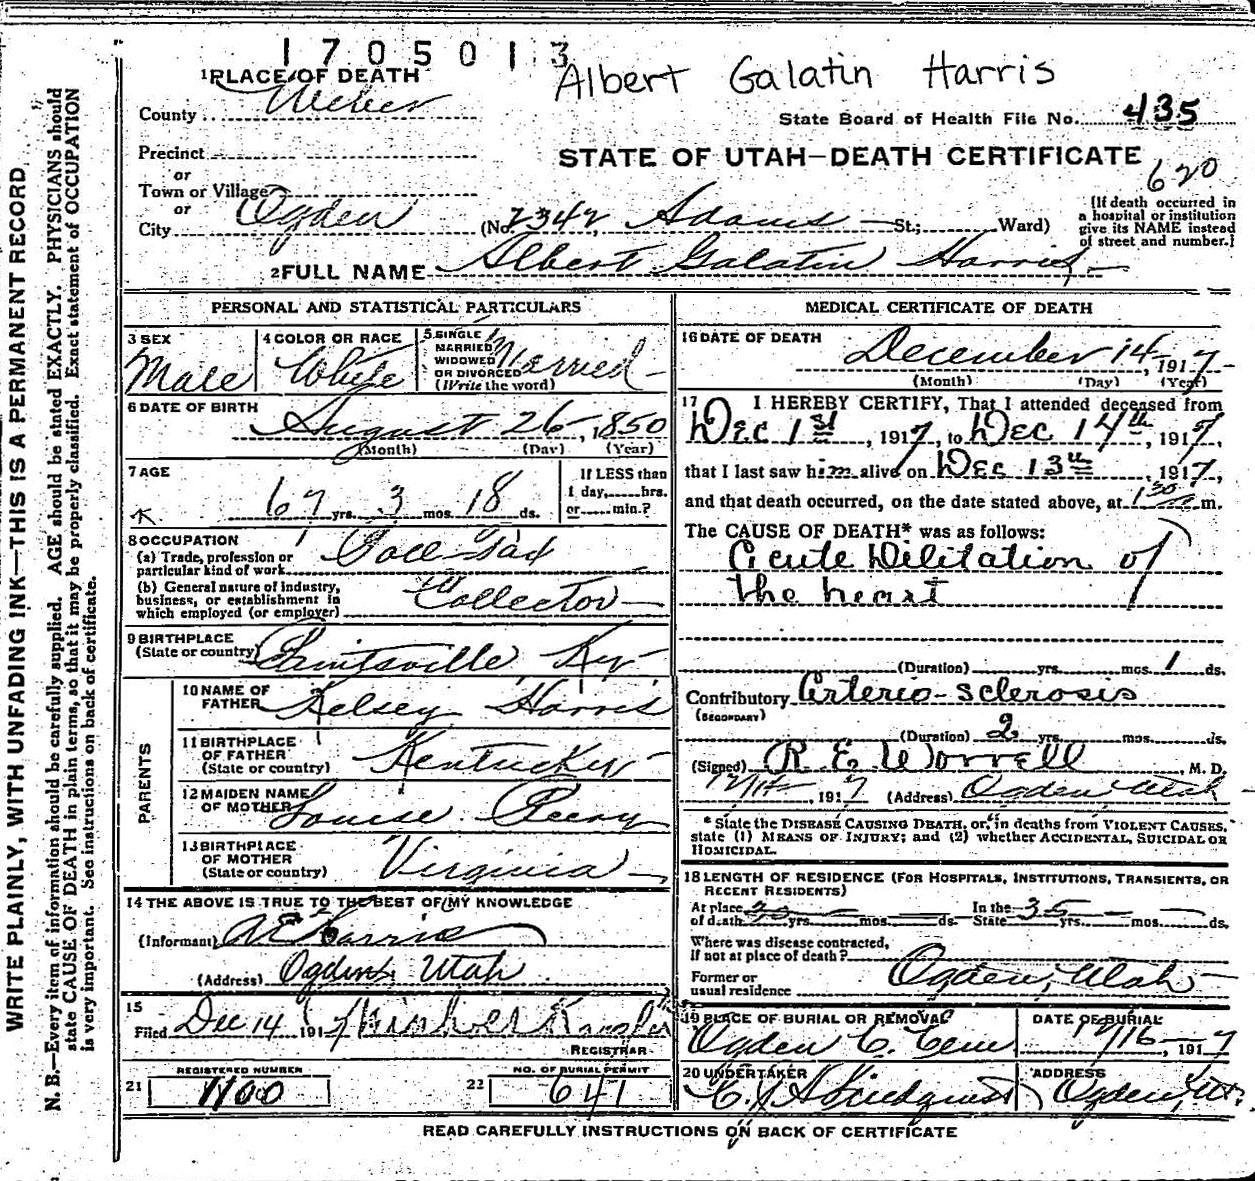 1705013
Albert Galatin Harris
1 PLACE OF DEATH
County Weber
State Board of Health File No. 435
Precinct
STATE OF UTAH—DEATH CERTIFICATE
620
or
Town or Village
or
City Ogden (No. 2342 Adams St.; Ward)
[If death occurred in
a hospital or institution
give its NAME instead
of street and number.]
2 FULL NAME Albert Galatin Harris
PERSONAL AND STATISTICAL PARTICULARS
3 SEX
Male
4 COLOR OR RACE
White
5 SINGLE
MARRIED
WIDOWED
OR DIVORCED
(Write the word)
Married
6 DATE OF BIRTH
August 26, 1850
(Month) (Day) (Year)
7 AGE
67 yrs. 3 mos. 18 ds.
If LESS than
1 day, hrs.
or min.?
8 OCCUPATION
(a) Trade, profession or
particular kind of work Poll Tax
(b) General nature of industry,
business, or establishment in
which employed (or employer) Collector
9 BIRTHPLACE
(State or country) Paintsville, Ky.
PARENTS
10 NAME OF
FATHER Kelsey Harris
11 BIRTHPLACE
OF FATHER
(State or country) Kentucky
12 MAIDEN NAME
OF MOTHER Louise Peery
13 BIRTHPLACE
OF MOTHER
(State or country) Virginia
14 THE ABOVE IS TRUE TO THE BEST OF MY KNOWLEDGE
(Informant) Harris
(Address) Ogden, Utah
15
Filed Dec 14, 1917
REGISTRAR
REGISTERED NUMBER
21 1100
NO. OF BURIAL PERMIT
22 641
MEDICAL CERTIFICATE OF DEATH
16 DATE OF DEATH
December 14, 1917
(Month) (Day) (Year)
17 I HEREBY CERTIFY, That I attended deceased from
Dec 1st, 1917, to Dec 14th, 1917,
that I last saw him alive on Dec 13th, 1917,
and that death occurred, on the date stated above, at 130 m.
The CAUSE OF DEATH* was as follows:
Acute Dilitation of
the heart
(Duration) yrs. mos. 1 ds.
Contributory Arterio-sclerosis
(SECONDARY)
(Duration) 2 yrs. mos. ds.
(Signed) R. E. Worrell, M. D.
, 1917 (Address) Ogden Utah
* State the DISEASE CAUSING DEATH, or, in deaths from VIOLENT CAUSES,
state (1) MEANS OF INJURY; and (2) whether ACCIDENTAL, SUICIDAL OR
HOMICIDAL.
18 LENGTH OF RESIDENCE (FOR HOSPITALS, INSTITUTIONS, TRANSIENTS, OR
RECENT RESIDENTS)
At place
of death yrs. mos. ds.
In the
State 35 yrs. mos. ds.
Where was disease contracted,
If not at place of death?
Former or
usual residence Ogden, Utah
19 PLACE OF BURIAL OR REMOVAL
Ogden C. Cem
DATE OF BURIAL
12/16, 1917
20 UNDERTAKER
ADDRESS
Ogden, Ut.
READ CAREFULLY INSTRUCTIONS ON BACK OF CERTIFICATE
WRITE PLAINLY, WITH UNFADING INK—THIS IS A PERMANENT RECORD
N. B.—Every item of information should be carefully supplied. AGE should be stated EXACTLY. PHYSICIANS should
state CAUSE OF DEATH in plain terms, so that it may be properly classified. Exact statement of OCCUPATION
is very important. See instructions on back of certificate.